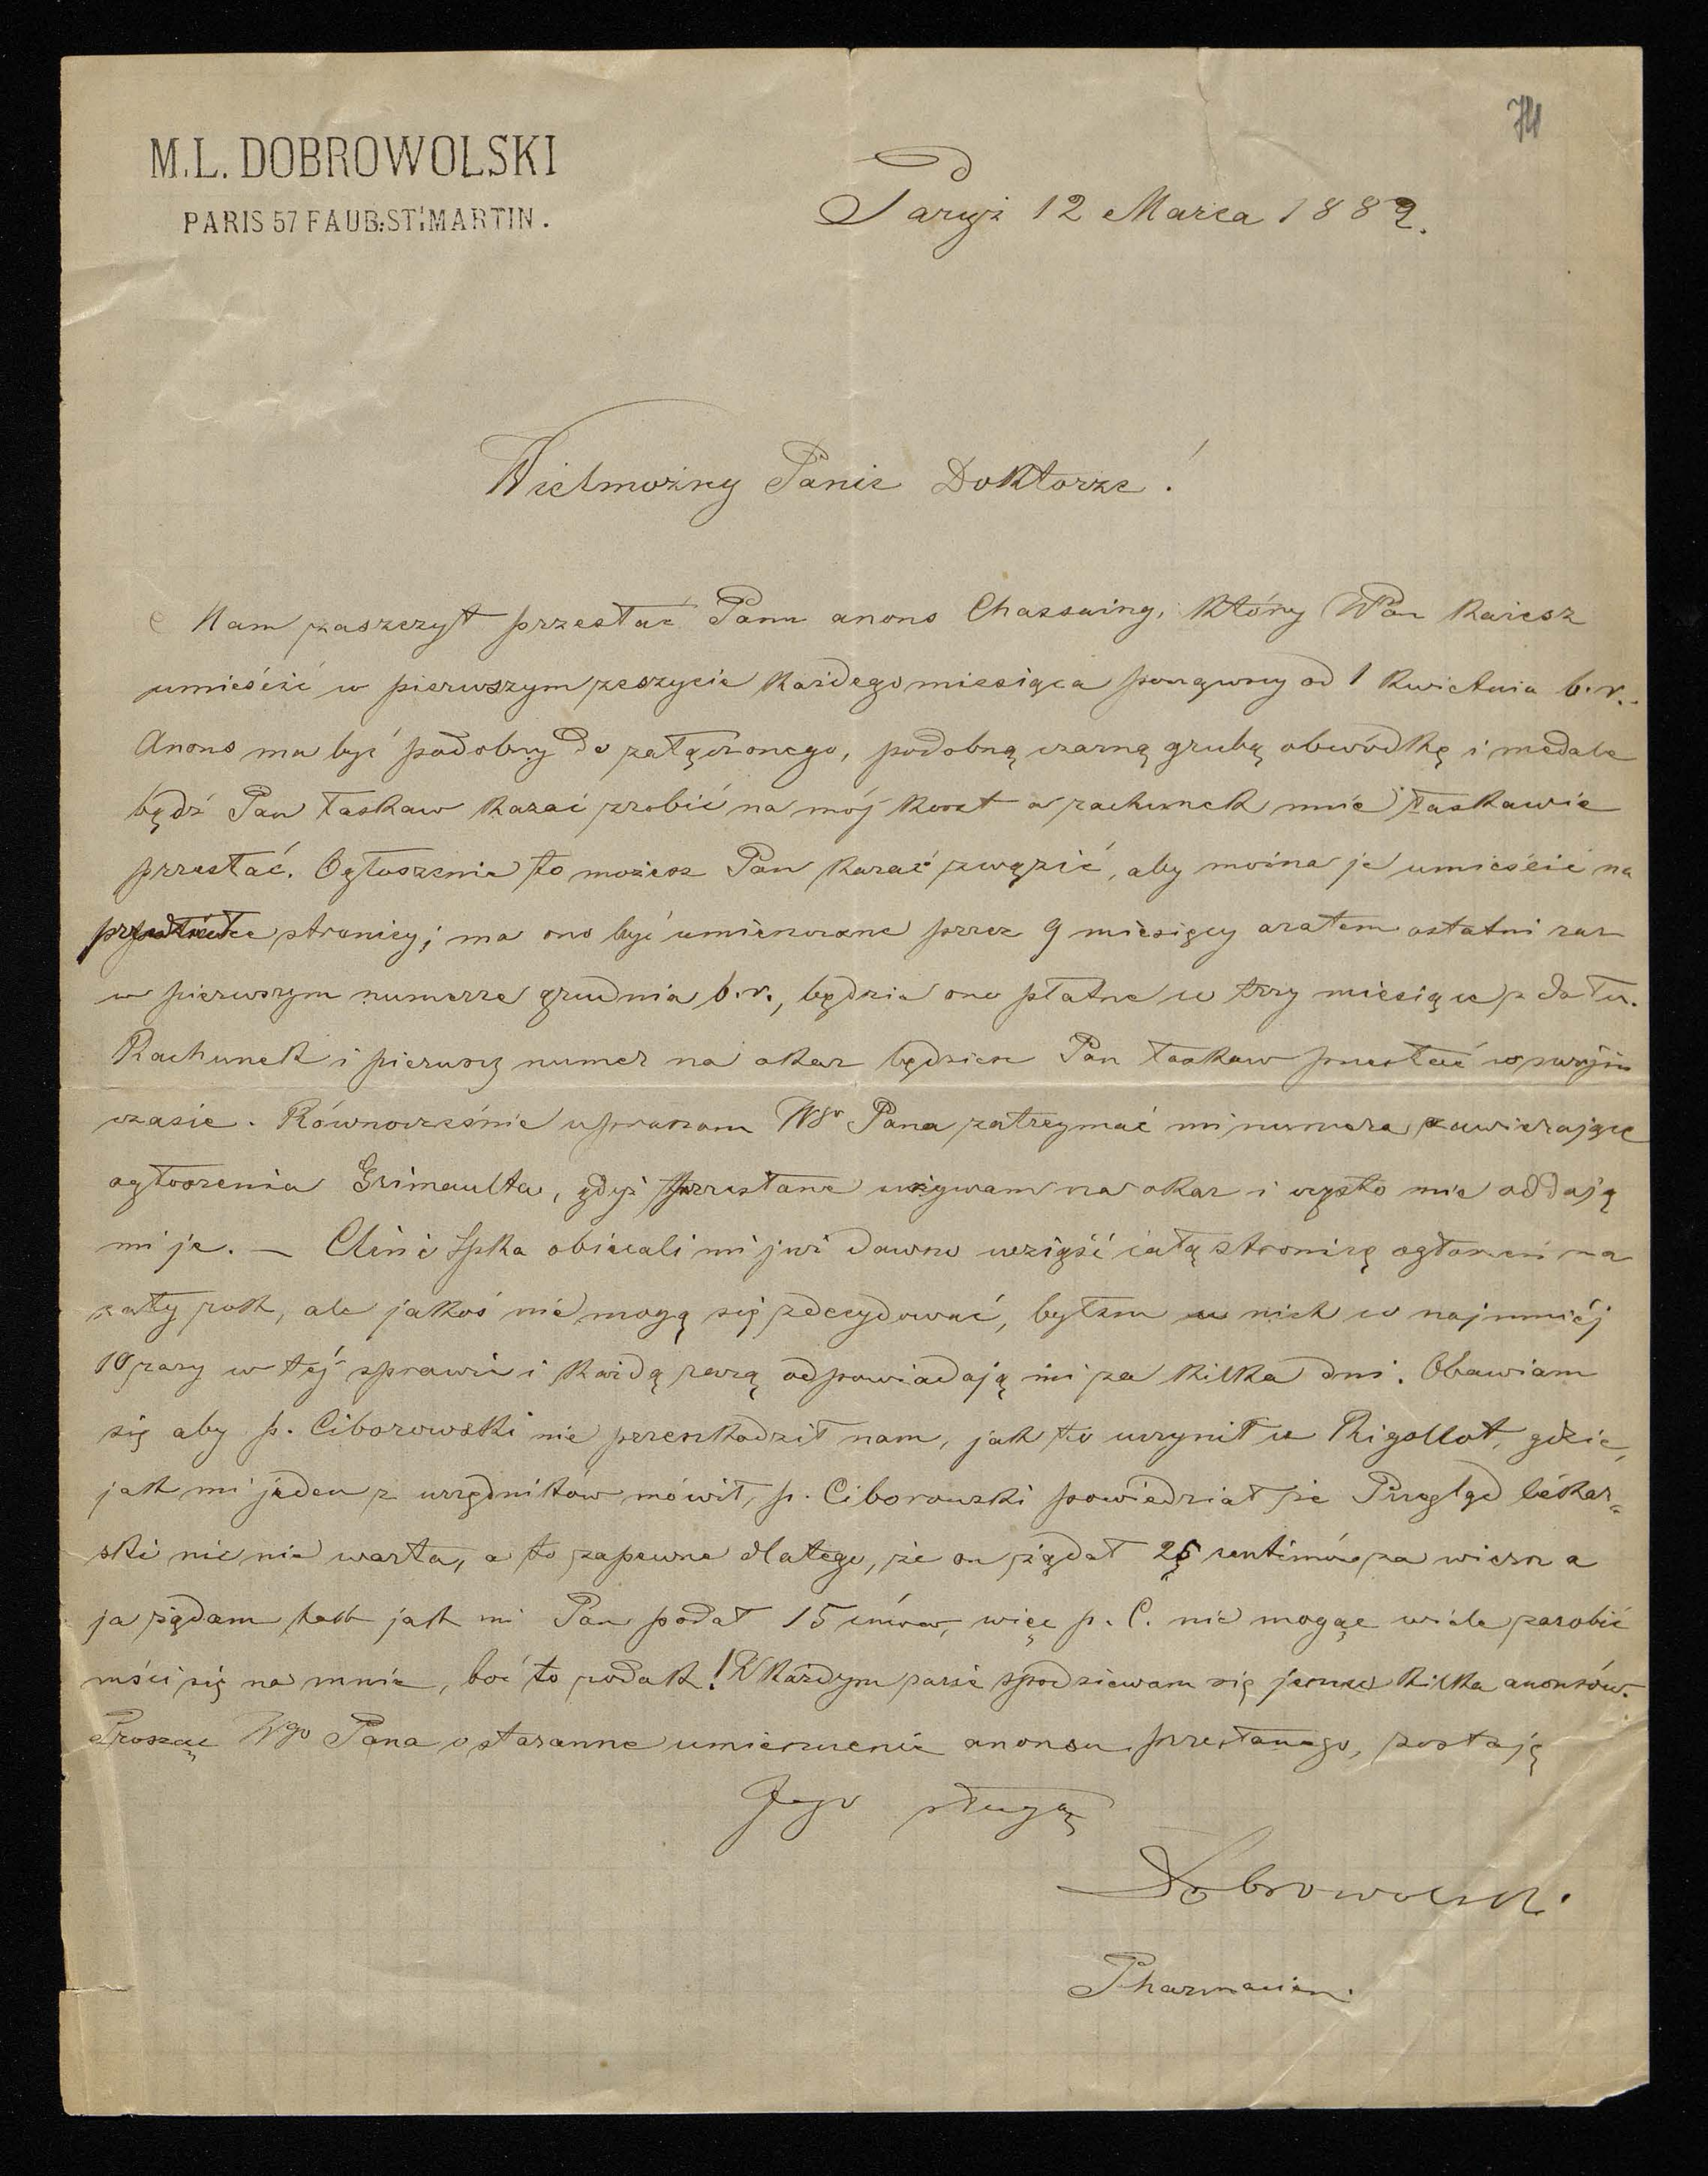 74
M.L. DOBROWOLSKI
PARIS 57 FAUB: ST. MARTIN.
Paryż 12 Marca 1882.
Wielmożny Panie Doktorze!
Mam zaszczyt przesłać Panu anons Chassaing, który WPan każesz
umieścić w pierwszym zeszycie każdego miesiąca począwszy od 1 Kwietnia b.r.
Anons ma być podobny do załączonego, podobną czarną grubą obwódkę i medale
bądź Pan łaskaw kazać zrobić na mój koszt a rachunek mnie łaskawie
przesłać. Ogłoszenie to możesz Pan kazać zwęzić, aby można je umieścić na
stronicy; ma ono być umieszczone przez 9 miesięcy a zatem ostatni raz
w pierwszym numerze grudnia b.r., będzie ono płatne w trzy miesiące z dołu.
Rachunek i pierwszy numer na okaz będziesz Pan łaskaw przesłać w swojim
czasie. Równocześnie upraszam WP Pana zatrzymać mi numera zawierające
ogłoszenia Grimaulta, gdyż przesłane używam na okaz i często nie oddają
mi je. — Clin i Spka obiecali mi już dawno wziąść całą stronicę ogłoszeń na
cały rok, ale jakoś nie mogą się zdecydować, byłem u nich co najmniéj
10 razy w téj sprawie i każdą razą odpowiadają mi za kilka dni. Obawiam
się aby p. Ciborowski nie przeszkodził nam, jak to uczynił u Rigollot, gdzie,
jak mi jeden z urzędników mówił, p. Ciborowski powiedział że Przegląd lékar-
ski nic nie warta, a to zapewne dlatego, że on żądał 25 centimów za wiersz a
ja żądam tak jak mi Pan podał 15 cmów, więc p. C. nie mogąc wiele zarobić
mści się na mnie, boć to rodak! W każdym razie spodziewam się jeszcze kilka anonsów.
Prosząc Wgo Pana o staranne umieszczenie anonsu przesłanego, zostaję
Jego sługą
Dobrowolski
Pharmacien.